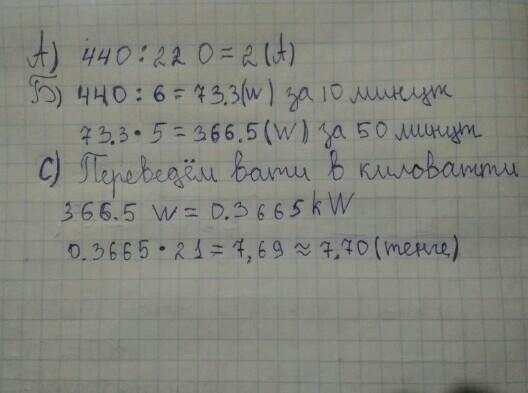 А) 440 : 220 = 2 (А)
Б) 440 : 6 = 73.3(W) за 10 минут
73.3 • 5 = 366.5(W) за 50 минут
С) Переведём вати в киловатти
366.5 W = 0.3665kW
0.3665 • 21 = 7,69 ≈ 7,70 (тенге)